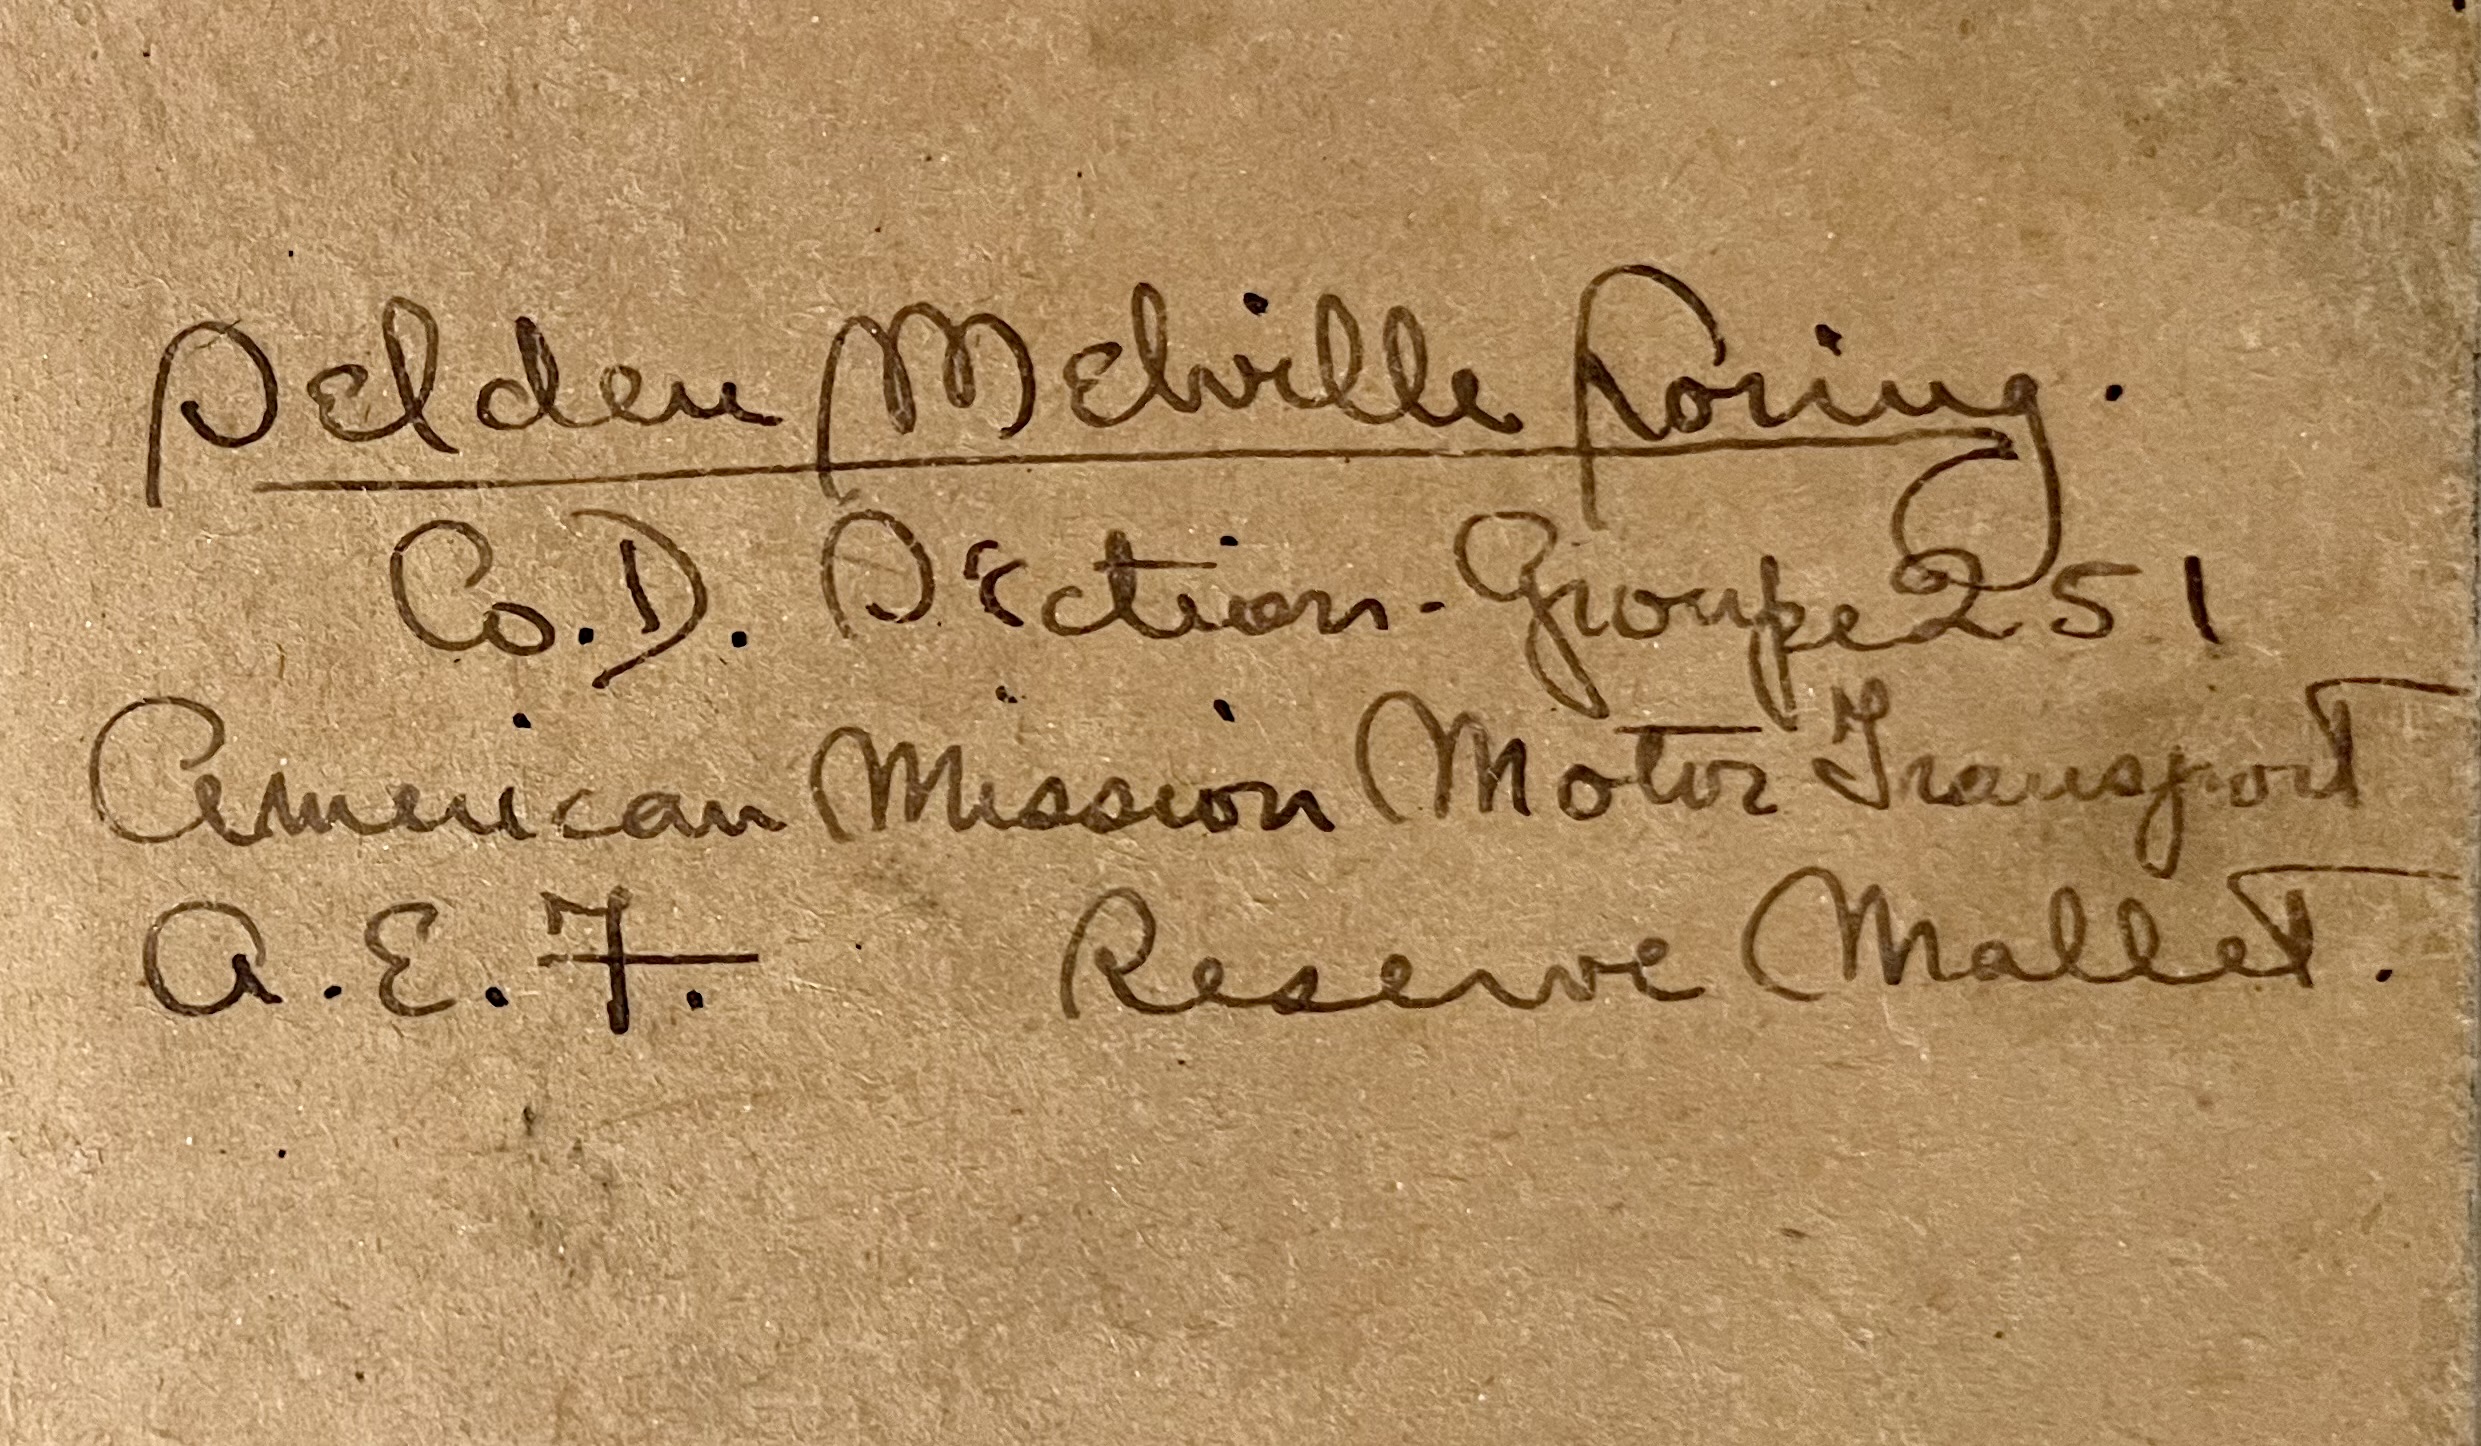 Selden Melville Loring.
Co. D. Section - Groupe 251
American Mission Motor Transport
A. E. F. Reserve Mallet.